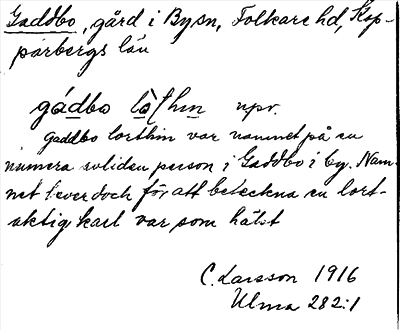 Gaddbo, gård i Bysn, Folkare hd, Kop-
parbergs län
gádbo lò/thin npr.
Gaddbo lorthin var namnet på en
numera avliden person i Gaddbo i by. Nam-
net lever doch för att beteckna en lort-
aktig karl var som hälst
C. Larsson 1916
Ulma 282:1